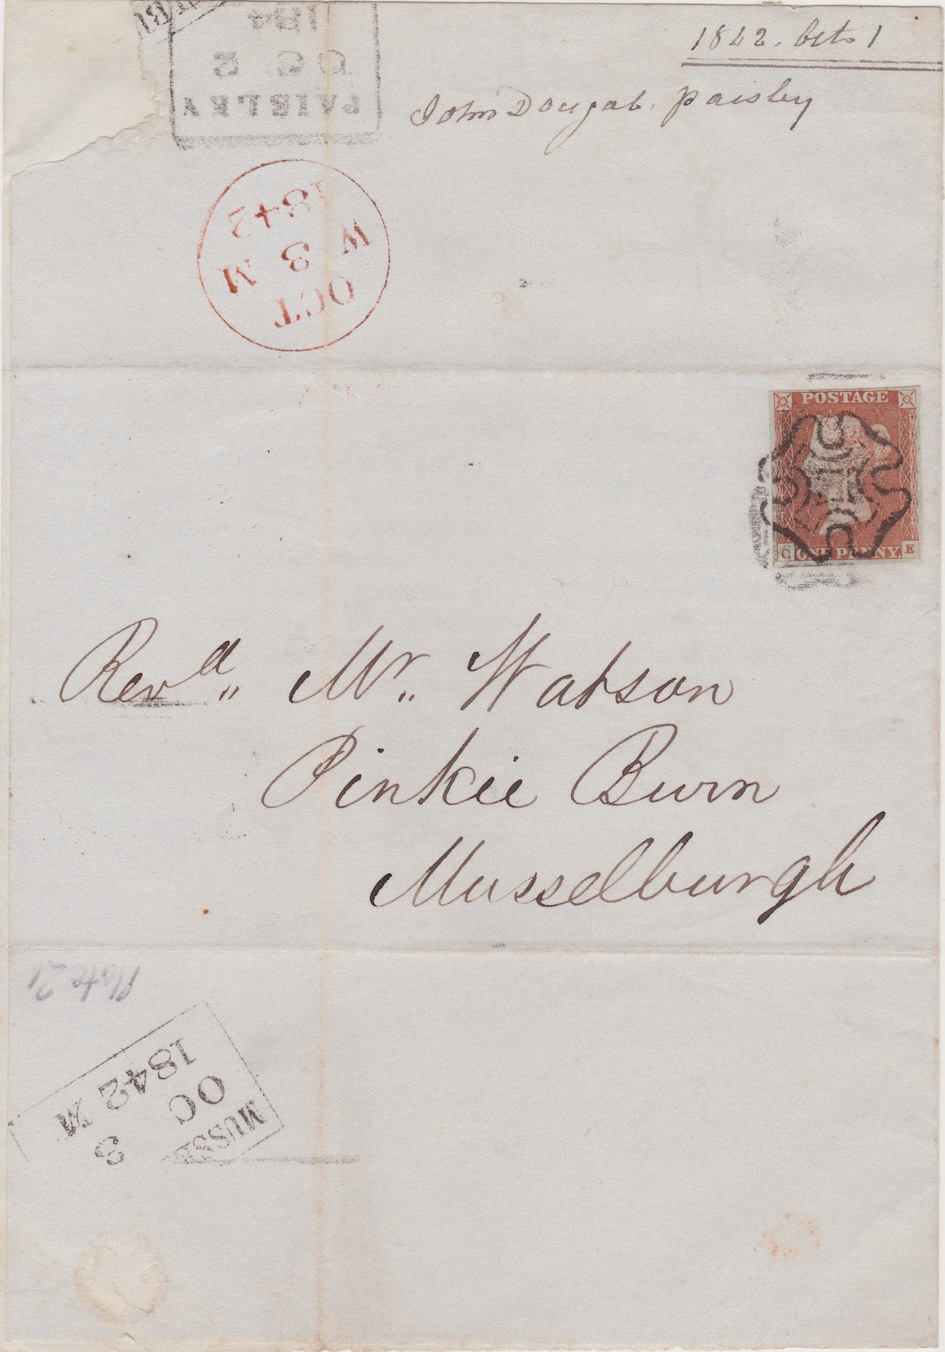 1842. Octo 1
John Dougal. Paisley
PAISLEY
OC 2
184
OCT
W 3 M
1842
POSTAGE
C ONE PENNY E
Revd„ Mr.. Watson
Pinkie Burn
Musselburgh
Plate 21
MUSSE
OC 3
1842 M